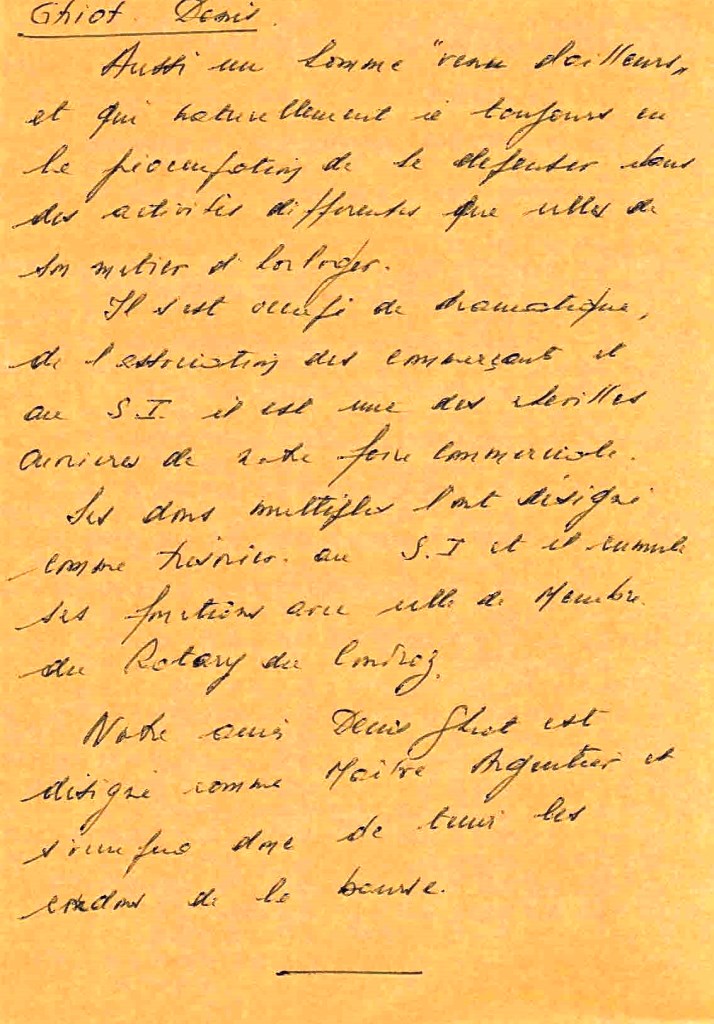 Ghiot Denis
Aussi un homme "venu d'ailleurs"
et qui naturellement a toujours eu
la préoccupation de se défenser dans
des activités différentes que celles de
son métier d'horloger.
Il s'est occupé de dramatique,
de l'association des commerçant et
au S.I. il est une des chevilles
ouvrières de notre foire commerciale.
Ses dons multiples l'ont désigné
comme trésorier au S.I et il cumule
ses fonctions avec celle de Membre
du Rotary du Condroz.
Notre ami Denis Ghiot est
désigné comme Maître Argentier et
s'occupera donc de tenir les
cordons de la bourse.